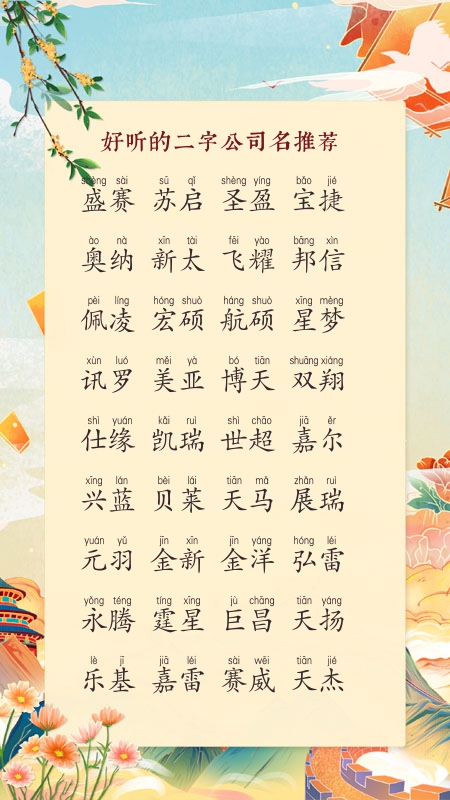 好听的二字公司名推荐
shèng sài sū qǐ shèng yíng bǎo jié
盛赛 苏启 圣盈 宝捷
ào nà xīn tài fēi yào bāng xìn
奥纳 新太 飞耀 邦信
pèi líng hóng shuò háng shuò xīng mèng
佩凌 宏硕 航硕 星梦
xùn luó měi yà bó tiān shuāng xiáng
讯罗 美亚 博天 双翔
shì yuán kǎi ruì shì chāo jiā ěr
仕缘 凯瑞 世超 嘉尔
xīng lán bèi lái tiān mǎ zhǎn ruì
兴蓝 贝莱 天马 展瑞
yuán yǔ jīn xīn jīn yáng hóng léi
元羽 金新 金洋 弘雷
yǒng téng tíng xīng jù chāng tiān yáng
永腾 霆星 巨昌 天扬
lè jī jiā léi sài wēi tiān jié
乐基 嘉雷 赛威 天杰